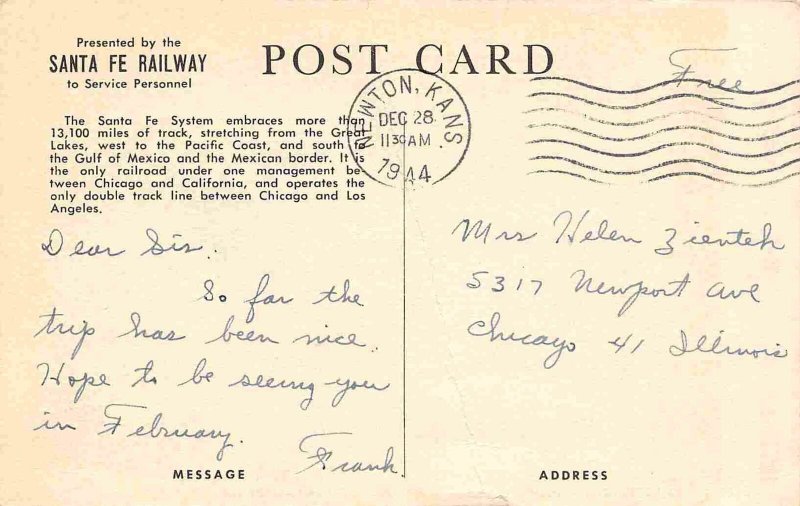 Presented by the
SANTA FE RAILWAY
to Service Personnel
POST CARD
The Santa Fe System embraces more than
13,100 miles of track, stretching from the Great
Lakes, west to the Pacific Coast, and south to
the Gulf of Mexico and the Mexican border. It is
the only railroad under one management be-
tween Chicago and California, and operates the
only double track line between Chicago and Los
Angeles.
NEWTON, KANS
DEC 28
1130AM
1944
Free
Dear Sis.
So far the
trip has been nice.
Hope to be seeing you
in February.
Frank.
MESSAGE
Mrs Helen Zientek
5317 Newport Ave
Chicago 41 Illinois
ADDRESS